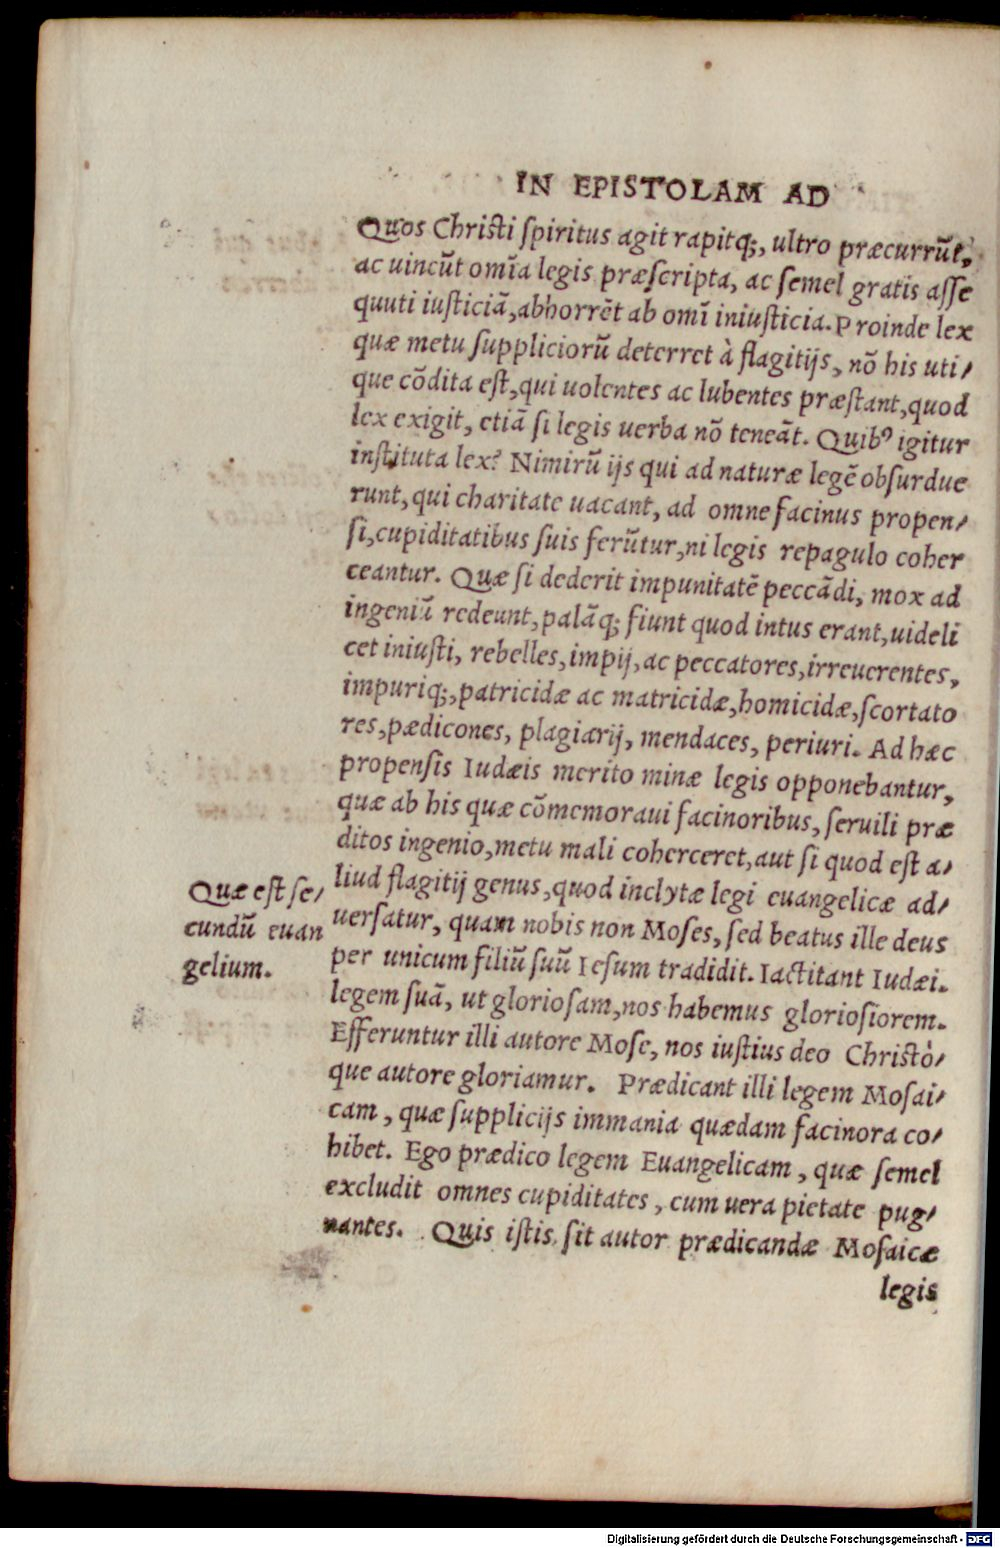 IN EPISTOLAM AD
Quos Christi ſpiritus agit rapitq;, ultro præcurrũt,
ac uincũt omĩa legis præſcripta, ac ſemel gratis aſſe
quuti iuſticiã, abhorrẽt ab omĩ iniuſticia. Proinde lex
quæ metu ſuppliciorũ deterret à flagitijs, nõ his uti/
que cõdita eſt, qui uolentes ac lubentes præſtant, quod
lex exigit, etiã ſi legis uerba nõ teneãt. Quibꝰ igitur
inſtituta lex? Nimirũ ijs qui ad naturæ legẽ obſurdue
runt, qui charitate uacant, ad omne facinus propen/
ſi, cupiditatibus ſuis ferũtur, ni legis repagulo coher
ceantur. Quæ ſi dederit impunitatẽ peccãdi, mox ad
ingeniũ redeunt, palãq; fiunt quod intus erant, uideli
cet iniuſti, rebelles, impij, ac peccatores, irreuerentes,
impuriq;, patricidæ ac matricidæ, homicidæ, ſcortato
res, pædicones, plagiarij, mendaces, periuri. Ad hæc
propenſis Iudæis merito minæ legis opponebantur,
quæ ab his quæ cõmemoraui facinoribus, ſeruili præ
ditos ingenio, metu mali coherceret, aut ſi quod eſt a/
liud flagitij genus, quod inclytæ legi euangelicæ ad/
uerſatur, quam nobis non Moſes, ſed beatus ille deus
per unicum filiũ ſuũ Ieſum tradidit. Iactitant Iudæi.
legem ſuã, ut glorioſam, nos habemus glorioſiorem.
Efferuntur illi autore Moſe, nos iuſtius deo Chriſtò/
que autore gloriamur. Prædicant illi legem Moſai/
cam, quæ ſupplicijs immania quædam facinora co/
hibet. Ego prædico legem Euangelicam, quæ ſemel
excludit omnes cupiditates, cum uera pietate pug/
nantes. Quis iſtis ſit autor prædicandæ Moſaicæ
legis
Quæ eſt ſe/
cundũ euan
gelium.
Digitalisierung gefördert durch die Deutsche Forschungsgemeinschaft - DFG